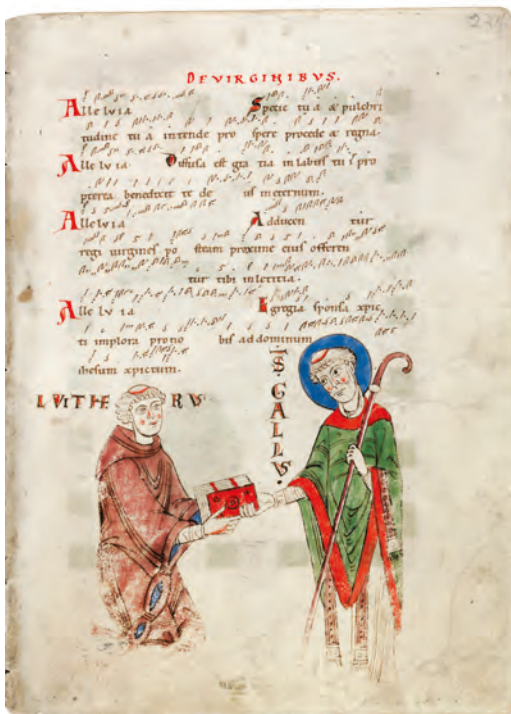 DE VIRGINIBVS.
Alleluia Specie tua & pulchri
tudine tu a intende pro spere procede & regna.
Alleluia Diffusa est gra tia in labiis tu is pro
pterea benedixit te de us in eternum.
Alleluia Adducen tur
regi virgines po steam proxime eius offeren
tur tibi in leticia.
Alleluia Egregia sponsa xpic
ti implora pro no bis ad dominum
ihesum xpictum.
LVITHE RVS
S GALLVS.